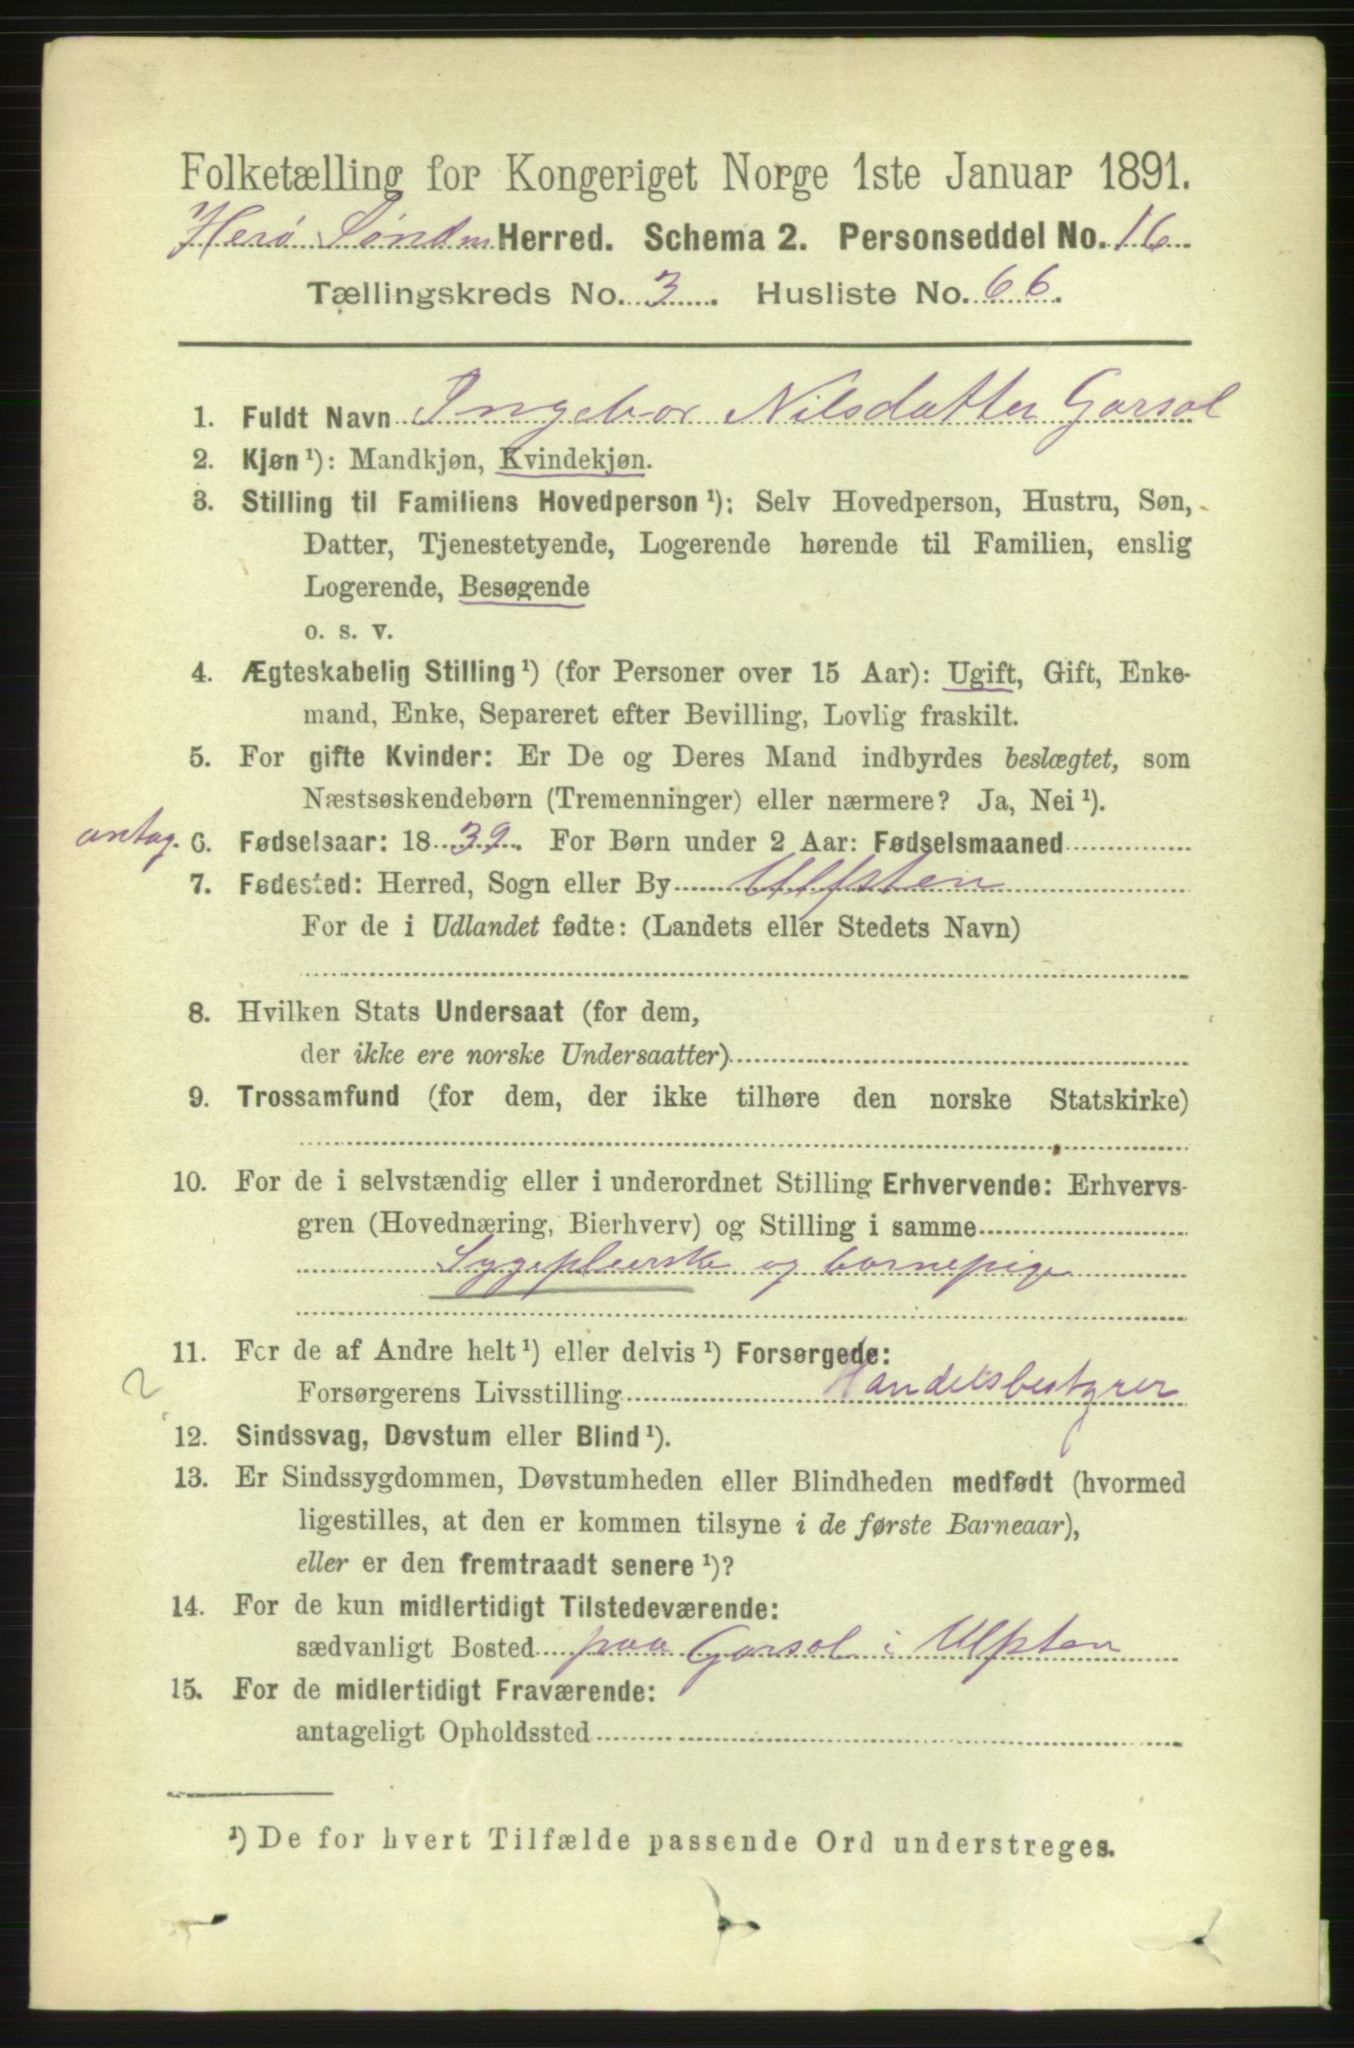 Folketælling for Kongeriget Norge 1ste Januar 1891.
Herø Søndm Herred. Schema 2. Personseddel No. 16
Tællingskreds No. 3. Husliste No. 66.
1. Fuldt Navn Ingebor Nilsdatter Garsol
2. Kjøn ¹): Mandkjøn, Kvindekjøn.
3. Stilling til Familiens Hovedperson ¹): Selv Hovedperson, Hustru, Søn,
Datter, Tjenestetyende, Logerende hørende til Familien, enslig
Logerende, Besøgende
o. s. v.
4. Ægteskabelig Stilling ¹) (for Personer over 15 Aar): Ugift, Gift, Enke-
mand, Enke, Separeret efter Bevilling, Lovlig fraskilt.
5. For gifte Kvinder: Er De og Deres Mand indbyrdes beslægtet, som
Næstsøskendebørn (Tremenninger) eller nærmere? Ja, Nei ¹).
antag. 6. Fødselsaar: 18 39. For Børn under 2 Aar: Fødselsmaaned
7. Fødested: Herred, Sogn eller By Ulfsten
For de i Udlandet fødte: (Landets eller Stedets Navn)
8. Hvilken Stats Undersaat (for dem,
der ikke ere norske Undersaatter)
9. Trossamfund (for dem, der ikke tilhøre den norske Statskirke)
10. For de i selvstændig eller i underordnet Stilling Erhvervende: Erhvervs-
gren (Hovednæring, Bierhverv) og Stilling i samme
Sygepleierske og barnepige
11. For de af Andre helt ¹) eller delvis ¹) Forsørgede:
2 Forsørgerens Livsstilling Handelsbestyrer
12. Sindssvag, Døvstum eller Blind ¹).
13. Er Sindssygdommen, Døvstumheden eller Blindheden medfødt (hvormed
ligestilles, at den er kommen tilsyne i de første Barneaar),
eller er den fremtraadt senere ¹)?
14. For de kun midlertidigt Tilstedeværende:
sædvanligt Bosted paa Garsol i Ulfsten
15. For de midlertidigt Fraværende:
antageligt Opholdssted
¹) De for hvert Tilfælde passende Ord understreges.